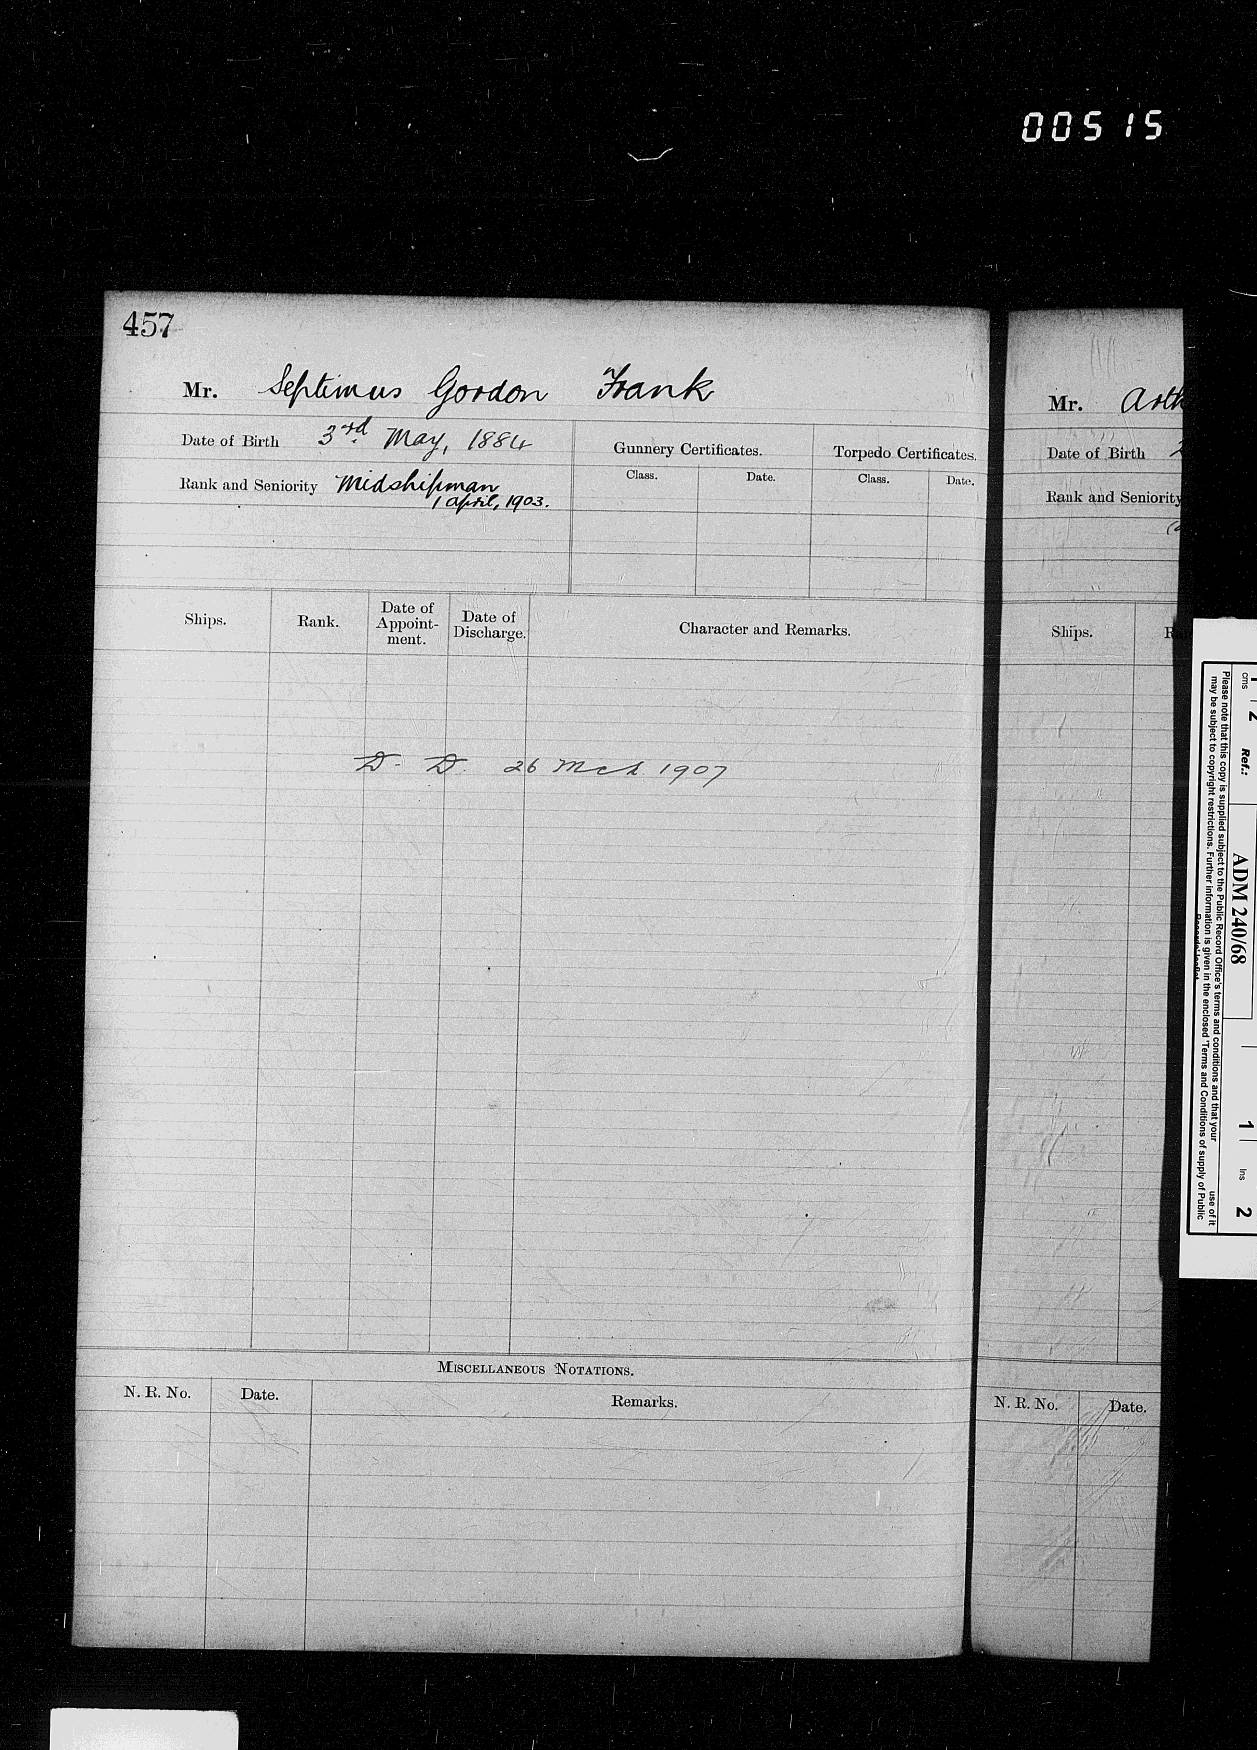 00515
457
Mr. Septimus Gordon Frank
Date of Birth 3rd May, 1884
Rank and Seniority Midshipman
1 April, 1903.
Gunnery Certificates. Torpedo Certificates.
Class. Date. Class. Date.
Ships. Rank. Date of Appoint-ment. Date of Discharge. Character and Remarks.
D. D. 26 Mch 1907
MISCELLANEOUS NOTATIONS.
N. R. No. Date. Remarks.
Mr.
Date of Birth
Rank and Seniority
Ships.
N. R. No. Date.
cms 2 Ref.: ADM 240/68 1 ins 2
Please note that this copy is supplied subject to the Public Record Office's terms and conditions and that your use of it
may be subject to copyright restrictions. Further information is given in the enclosed 'Terms and Conditions of supply of Public